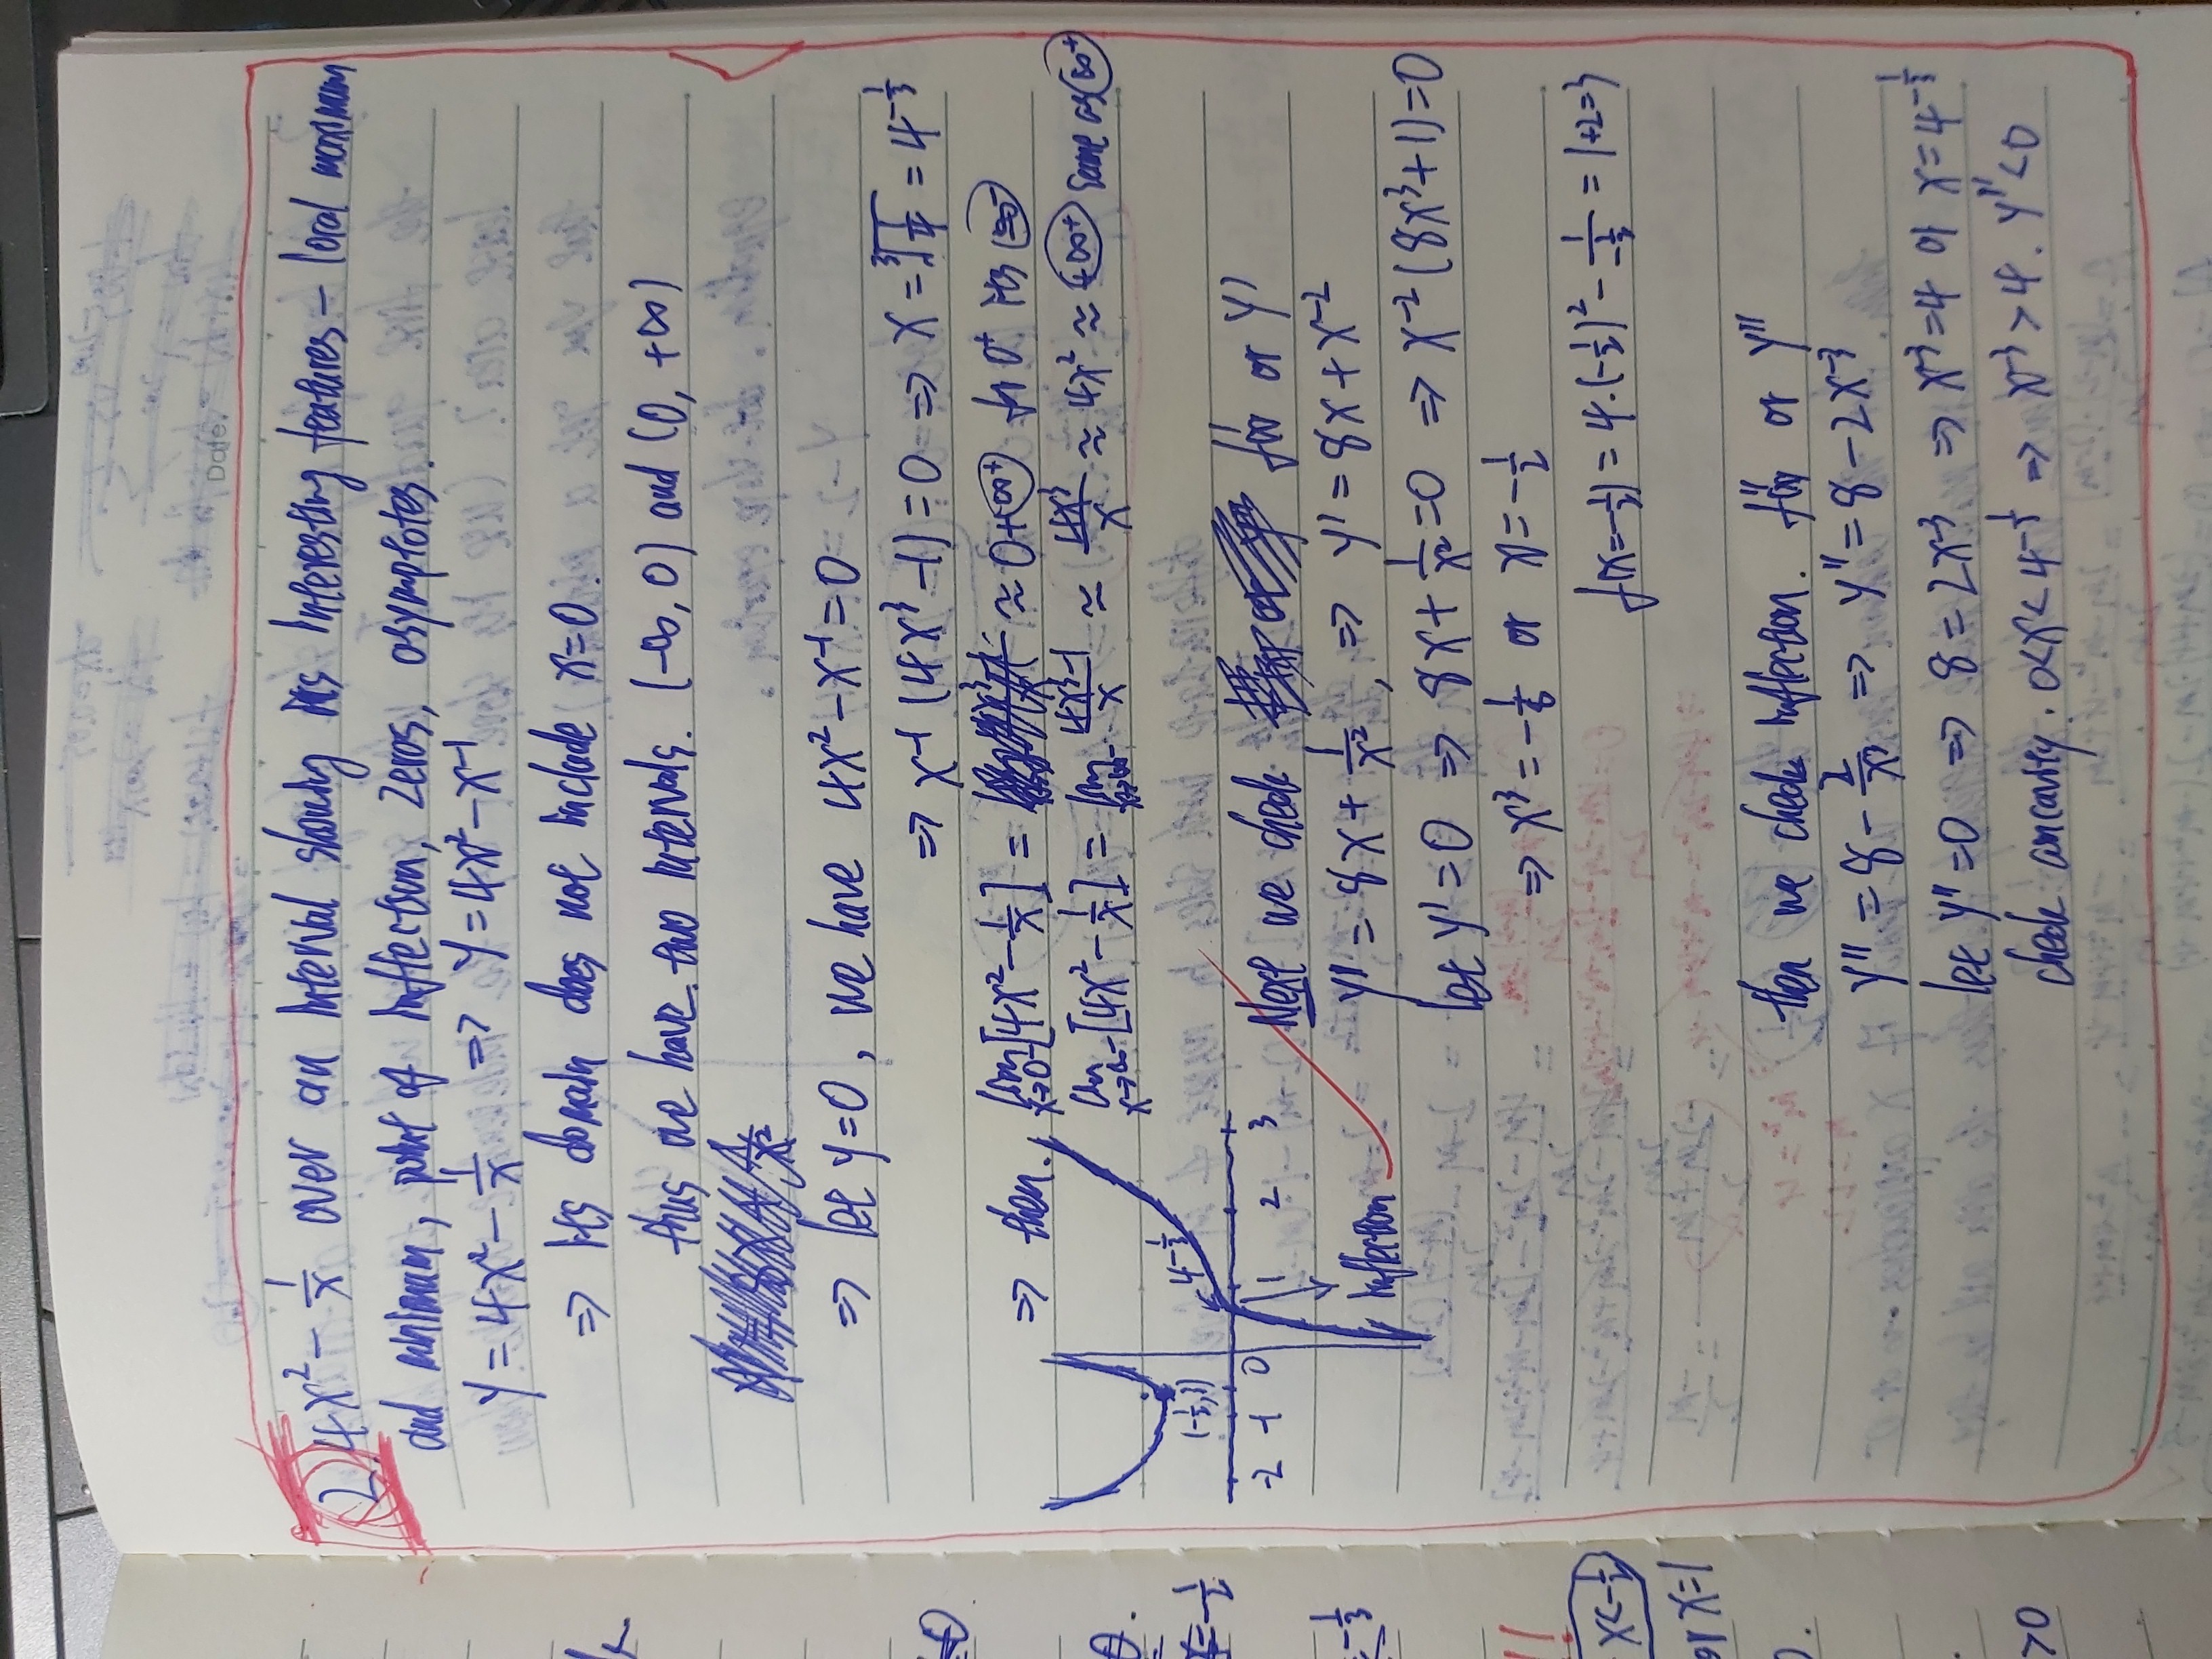 Date.
2. 4x² - 1/x over an interval showing its interesting features - local maximum
and minimum, point of inflection, zeros, asymptotes.
y = 4x² - 1/x => y = 4x² - x⁻¹
=> Its domain does not include x=0.
thus we have two intervals. (-∞, 0) and (0, +∞)
=> let y=0, we have 4x² - x⁻¹ = 0
=> x⁻¹ (4x³ - 1) = 0 => x = ∛(1/4) = 4^(-1/3)
=> then. lim x→0⁻ [4x² - 1/x] = ≈ 0+∞⁺ for 0⁺ its ∞⁻
lim x→∞⁻ [4x² - 1/x] = lim x→∞⁻ (4x³-1)/x ≈ 4x³/x ≈ 4x² ≈ +∞⁺ same as ∞⁺
(-1/2, 3)
4^(-1/3)
-2 -1 0 1 2 3
inflection
Next we check f'(x) or y'
y' = 8x + 1/x², => y' = 8x + x⁻²
let y' = 0 => 8x + 1/x² = 0 => x⁻² (8x³+1) = 0
=> x³ = -1/8 or x = -1/2
f(x=-1/2) = 4·(-1/2)² - 1/(-1/2) = 1+2=3
then we check inflection. f''(x) or y''
y'' = 8 - 2/x³ => y'' = 8 - 2x⁻³
let y'' = 0 => 8 = 2x⁻³ => x⁻³ = 4 or x = 4^(-1/3)
check concavity. 0<x<4^(-1/3) => x⁻³ > 4. y'' < 0
x=-1/2
-1/3
!!
x<-1/2
or x=1
>0